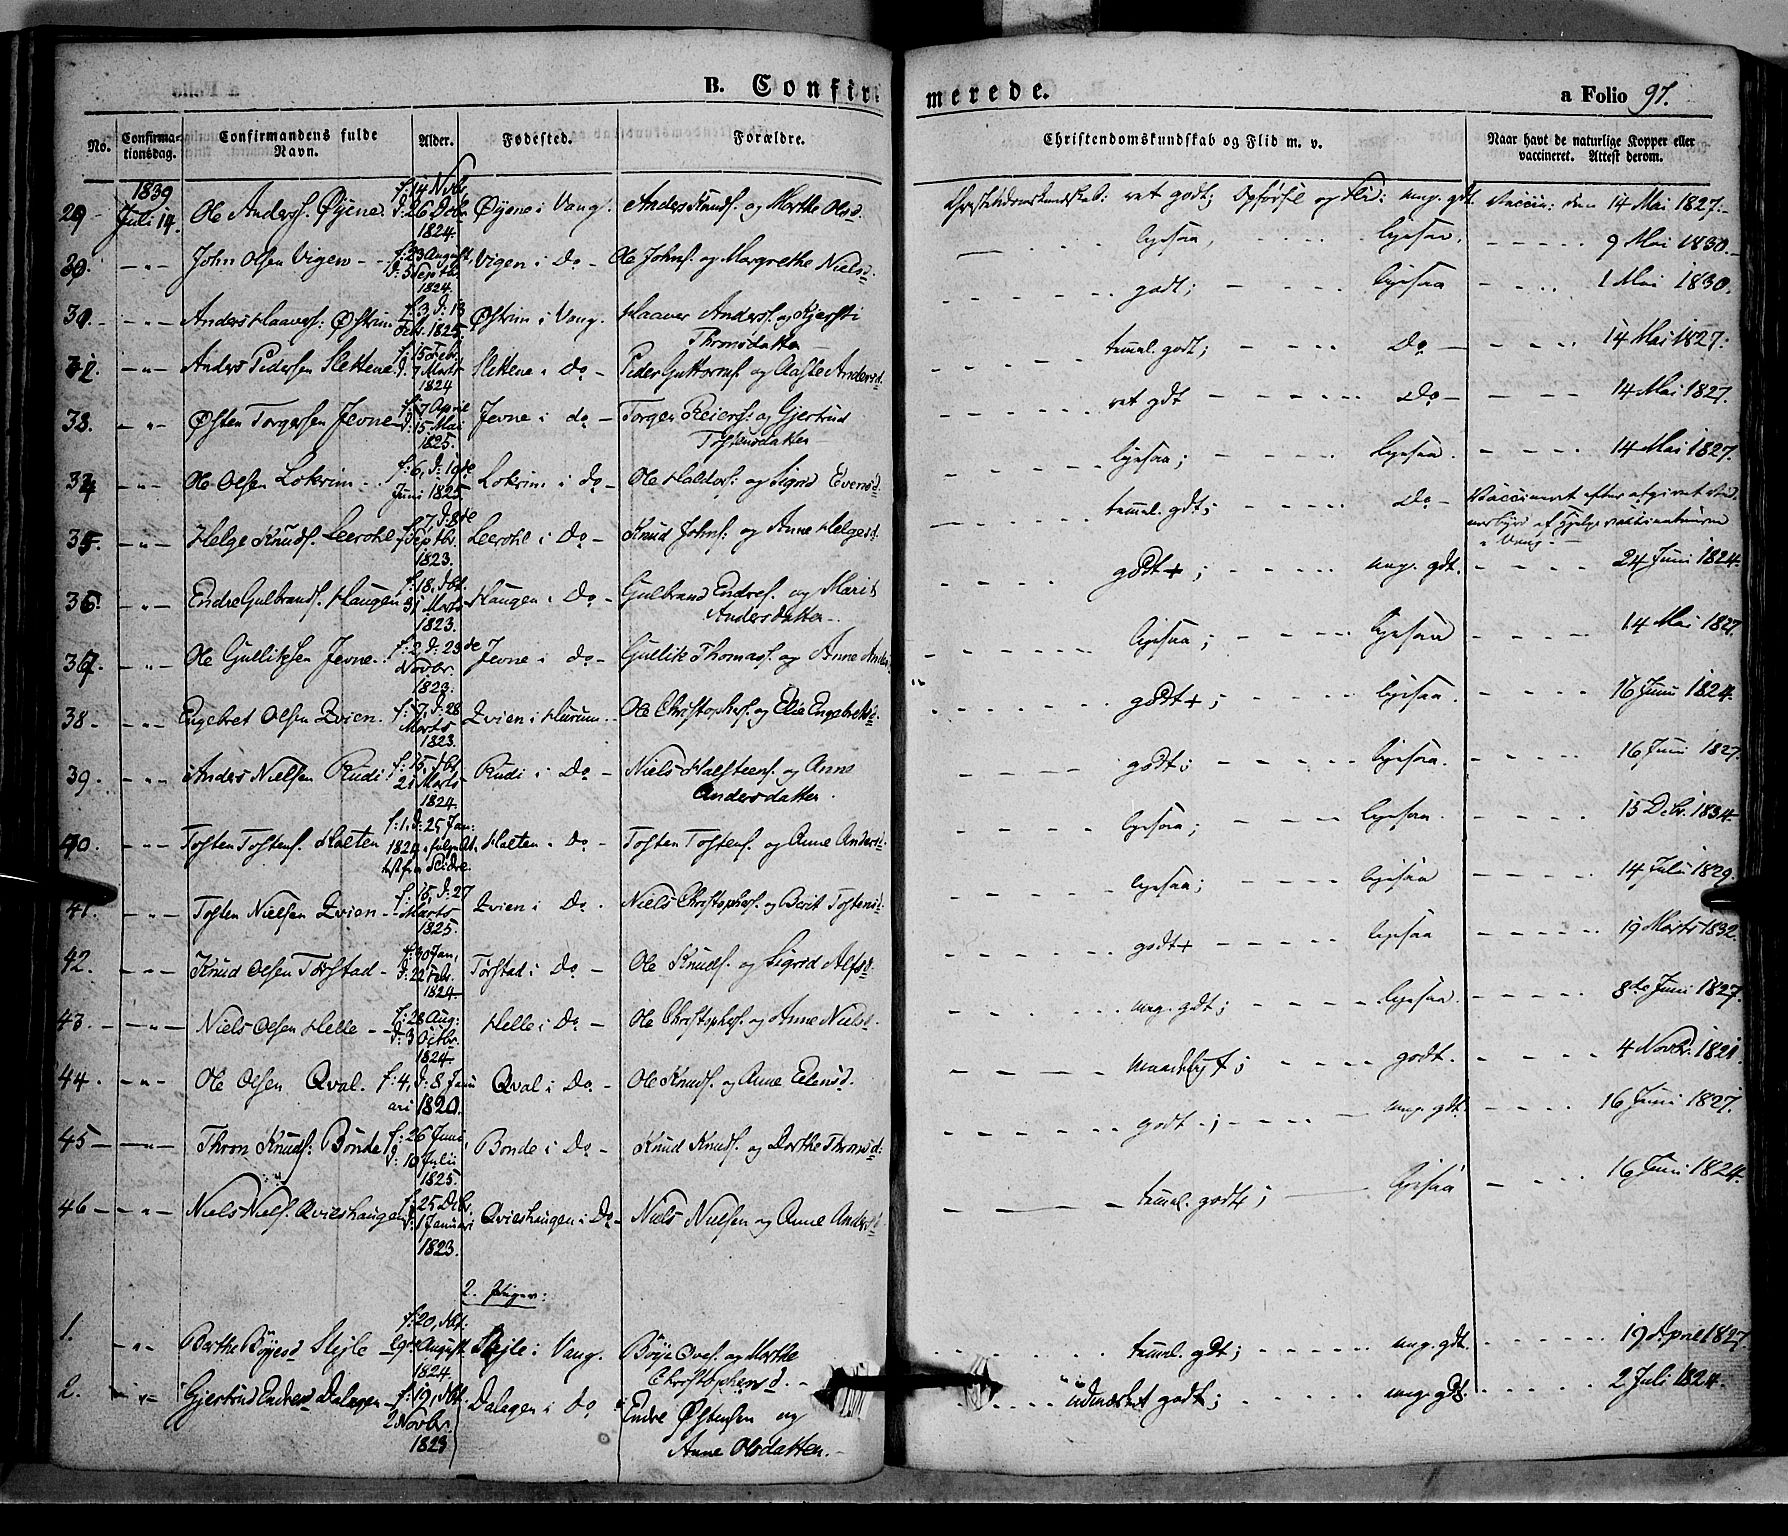 B. Confirmerede. a Folio 97.
No. Confirmationsdag. Confirmandens fulde Navn. Alder. Fødested. Forældre. Christendomskundskab og Flid m. v. Naar havt de naturlige Kopper eller vaccineret. Attest derom.
1839
29 Juli 14. Ole Anderss. Øyene. f: 14 Novbr. d: 26 Decbr. 1824. Øyene i Vang. Anders Knuds. og Marthe Olsd. Christendomskundskab: ret godt; Opførsel og Flid: meg. gdt. Vaccin: den 14 Mai 1827.
30. - " - John Olsen Vigen f: 23 August, d: 5 Septbr. 1824. Vigen i Do - Ole Johns. og Margrethe Nielsd. ligesaa, ligesaa. 9 Mai 1830.
- " - Anders Haavers: Østrim f. 3, d: 13 1825. Østrim i Vang. Haaver Anders. og Kjersti Thronsdatter godt; ligesaa 1 Mai 1830.
32. - " - Anders Pedersen Slettene f: 15 Febr. d. 7 Marts 1824 Slettene i Do - Peder Guttorms. og Aaste Andersd. temml. godt; Do - 14 Mai 1827.
33. - " - Østen Torgersen Jevne f: 7 April d: 15 Mai 1825. Jevne i do - Torger Reiers: og Gjertrud Tostensdatter ret gdt Do - 14 Mai 1827.
34 - " - Ole Olsen Lokrim f: 6, d: 19de Juni 1825 Lokrim i do - Ole Haldors: og Sigrid Evensd. ligesaa; ligesaa. 14 Mai 1827.
35. - " - Helge Knuds. Leerohl f: 7, d: 8de Septbr. 1823. Leerohl i Do - Knud Johns: og Anne Helgesd. temml. gdt; Do - Vaccineret efter afgivet af i Vang.
36. - " - Endre Gulbrands. Haugen f. 18. dbt. 31 Marts 1823. Haugen i Do - Gulbrand Endres. og Marit Andersdatter godt+; meg. gdt. 24 Juni 1824.
37 - " - Ole Gulliksen Jevne f: 2, d: 23de Novbr. 1823. Jevne i do - Gullik Thomas. og Anne ligesaa; ligesaa 14 Mai 1827.
38 - " - Engebret Olsen Qvien. f: 7, d: 28 Marts 1823. Qvien i Hurum. Ole Christophers. og Elie Engebretsd. godt+; ligesaa. 16 Juni 1824.
39 - " - Anders Nielsen Rudi f: 15, dbt 21 Marts 1824. Rudi i Do - Niels Halsteens. og Anne Andersdatter. godt; ligesaa. 16 Juni 1827.
40 - " - Tosten Tostens. Hælten f: 1, d: 25 Jan: 1824, ifølge fra Slidre. Hælten i Do - Tosten Tostens. og Anne Andersd. ligesaa; ligesaa. 15 Decbr. 1834.
41. - " - Tosten Nielsen Qvien f: 15, d: 27 Marts 1825. Qvien i Do. Niels Christophers. og Berit Tostensd. ligesaa; ligesaa 14 Juli 1829.
42. - " - Knud Olsen Tørstad f: 30 Jan, d: 22 Febr. 1824. Tørstad i Do - Ole Knuds. og Sigrid Alfsd. godt+ ligesaa 19 Marts 1832.
43. - " - Niels Olsen Helle f: 28 Aug: d: 3 Octbr. 1824. Helle i Do - Ole Christophers. og Anne Nielsd. meg. gdt; ligesaa. 8de Juni 1827.
44. - " - Ole Olsen Qval. f: 4, d: 8 Januari 1820. Qval i Do - Ole Knuds. og Anne godt. 4 Novbr. 1821.
45 - " - Thron Knuds: Bonde f: 26 Juni, d: 10 Julii 1825. Bonde i Do - Knud Knuds. og Dorthe Thronsd. godt; meg. gdt. 16 Juni 1827.
46 - " - Niels Niels. Qvieshaugen f: 25 Debr. d: 1 Januari 1823. Qvieshaugen i Do - Niels Nielsen og Anne Andersd temml. godt; ligesaa 16 Juni 1824.
2. Piger:
1. - " - Berthe Bøyesd Skjle f: 20, dbt: August 1824. Skjle i Vang. Bøye Oves. og Marthe Christophersd. temml. gdt; meg. gdt. 19 April 1827.
2. - " - Gjertrud Endresd Dalagen f: 19, dbt. 2 Novbr. 1823 Dalagen i Do Endre Østensen og Anne Olsdatter. udmærket godt; meg. gdt. 2 Juli 1824.